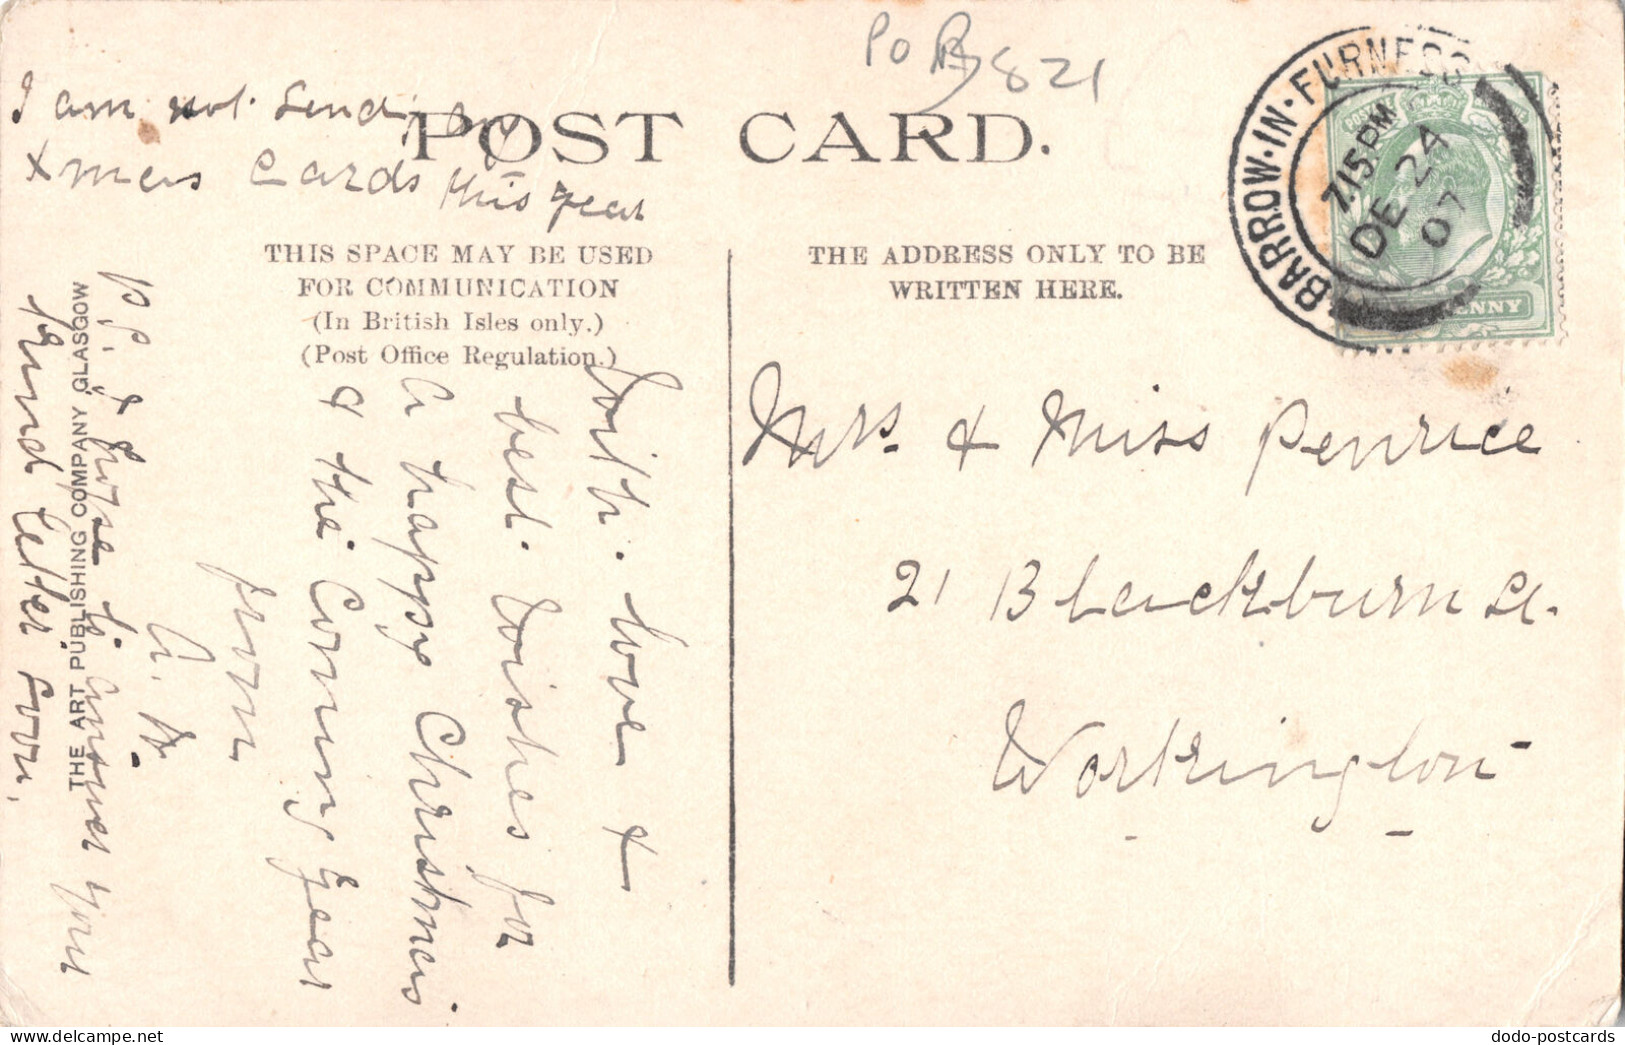 I am not sending any
Xmas Cards this year
POST CARD.
THIS SPACE MAY BE USED
FOR COMMUNICATION
(In British Isles only.)
(Post Office Regulation.)
With love &
best Wishes for
A happy Christmas
& the Coming Year
from
A. W.
P.S. I hope to answer your
kind letter soon.
THE ART PUBLISHING COMPANY, GLASGOW
821
THE ADDRESS ONLY TO BE
WRITTEN HERE.
BARROW-IN-FURNESS
7.15 PM
DE 24
07
PENNY
Mrs. & Miss Penrice
21 Blackburn St.
Workington
dodo-postcards